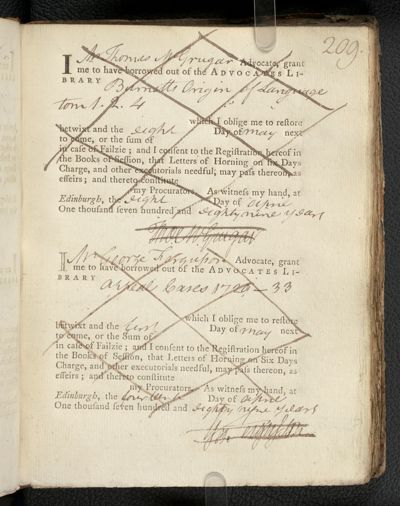 209.
I Mr Thomas McGrugar Advocate, grant
me to have borrowed out of the ADVOCATES LI-
BRARY Burnetts Origin of Language
tom 1. 2. 4
which I oblige me to restore
betwixt and the eight Day of may next
to come, or the sum of
in case of Failzie; and I consent to the Registration hereof in
the Books of Session, that Letters of Horning on six Days
Charge, and other executorials needful; may pass thereon, as
effeirs; and thereto constitute
my Procurators. As witness my hand, at
Edinburgh, the eight Day of aprile
One thousand seven hundred and eighty nine years
Thos McGrugar
I Mr George Fergusson Advocate, grant
me to have borrowed out of the ADVOCATES LI-
BRARY Appeal Cases 33
which I oblige me to restore
betwixt and the Day of may next
to come, or the Sum of
in case of Failzie; and I consent to the Registration hereof in
the Books of Session, that Letters of Horning on Six Days
Charge, and other executorials needful, may pass thereon, as
effeirs; and thereto constitute
my Procurators. As witness my hand, at
Edinburgh, the Day of aprile
One thousand seven hundred and eighty nyne years